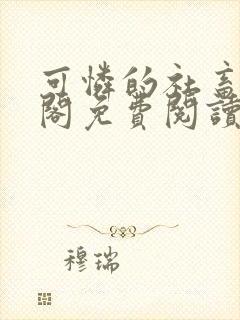 可憐的社畜
閣免費閱讀
穆瑞